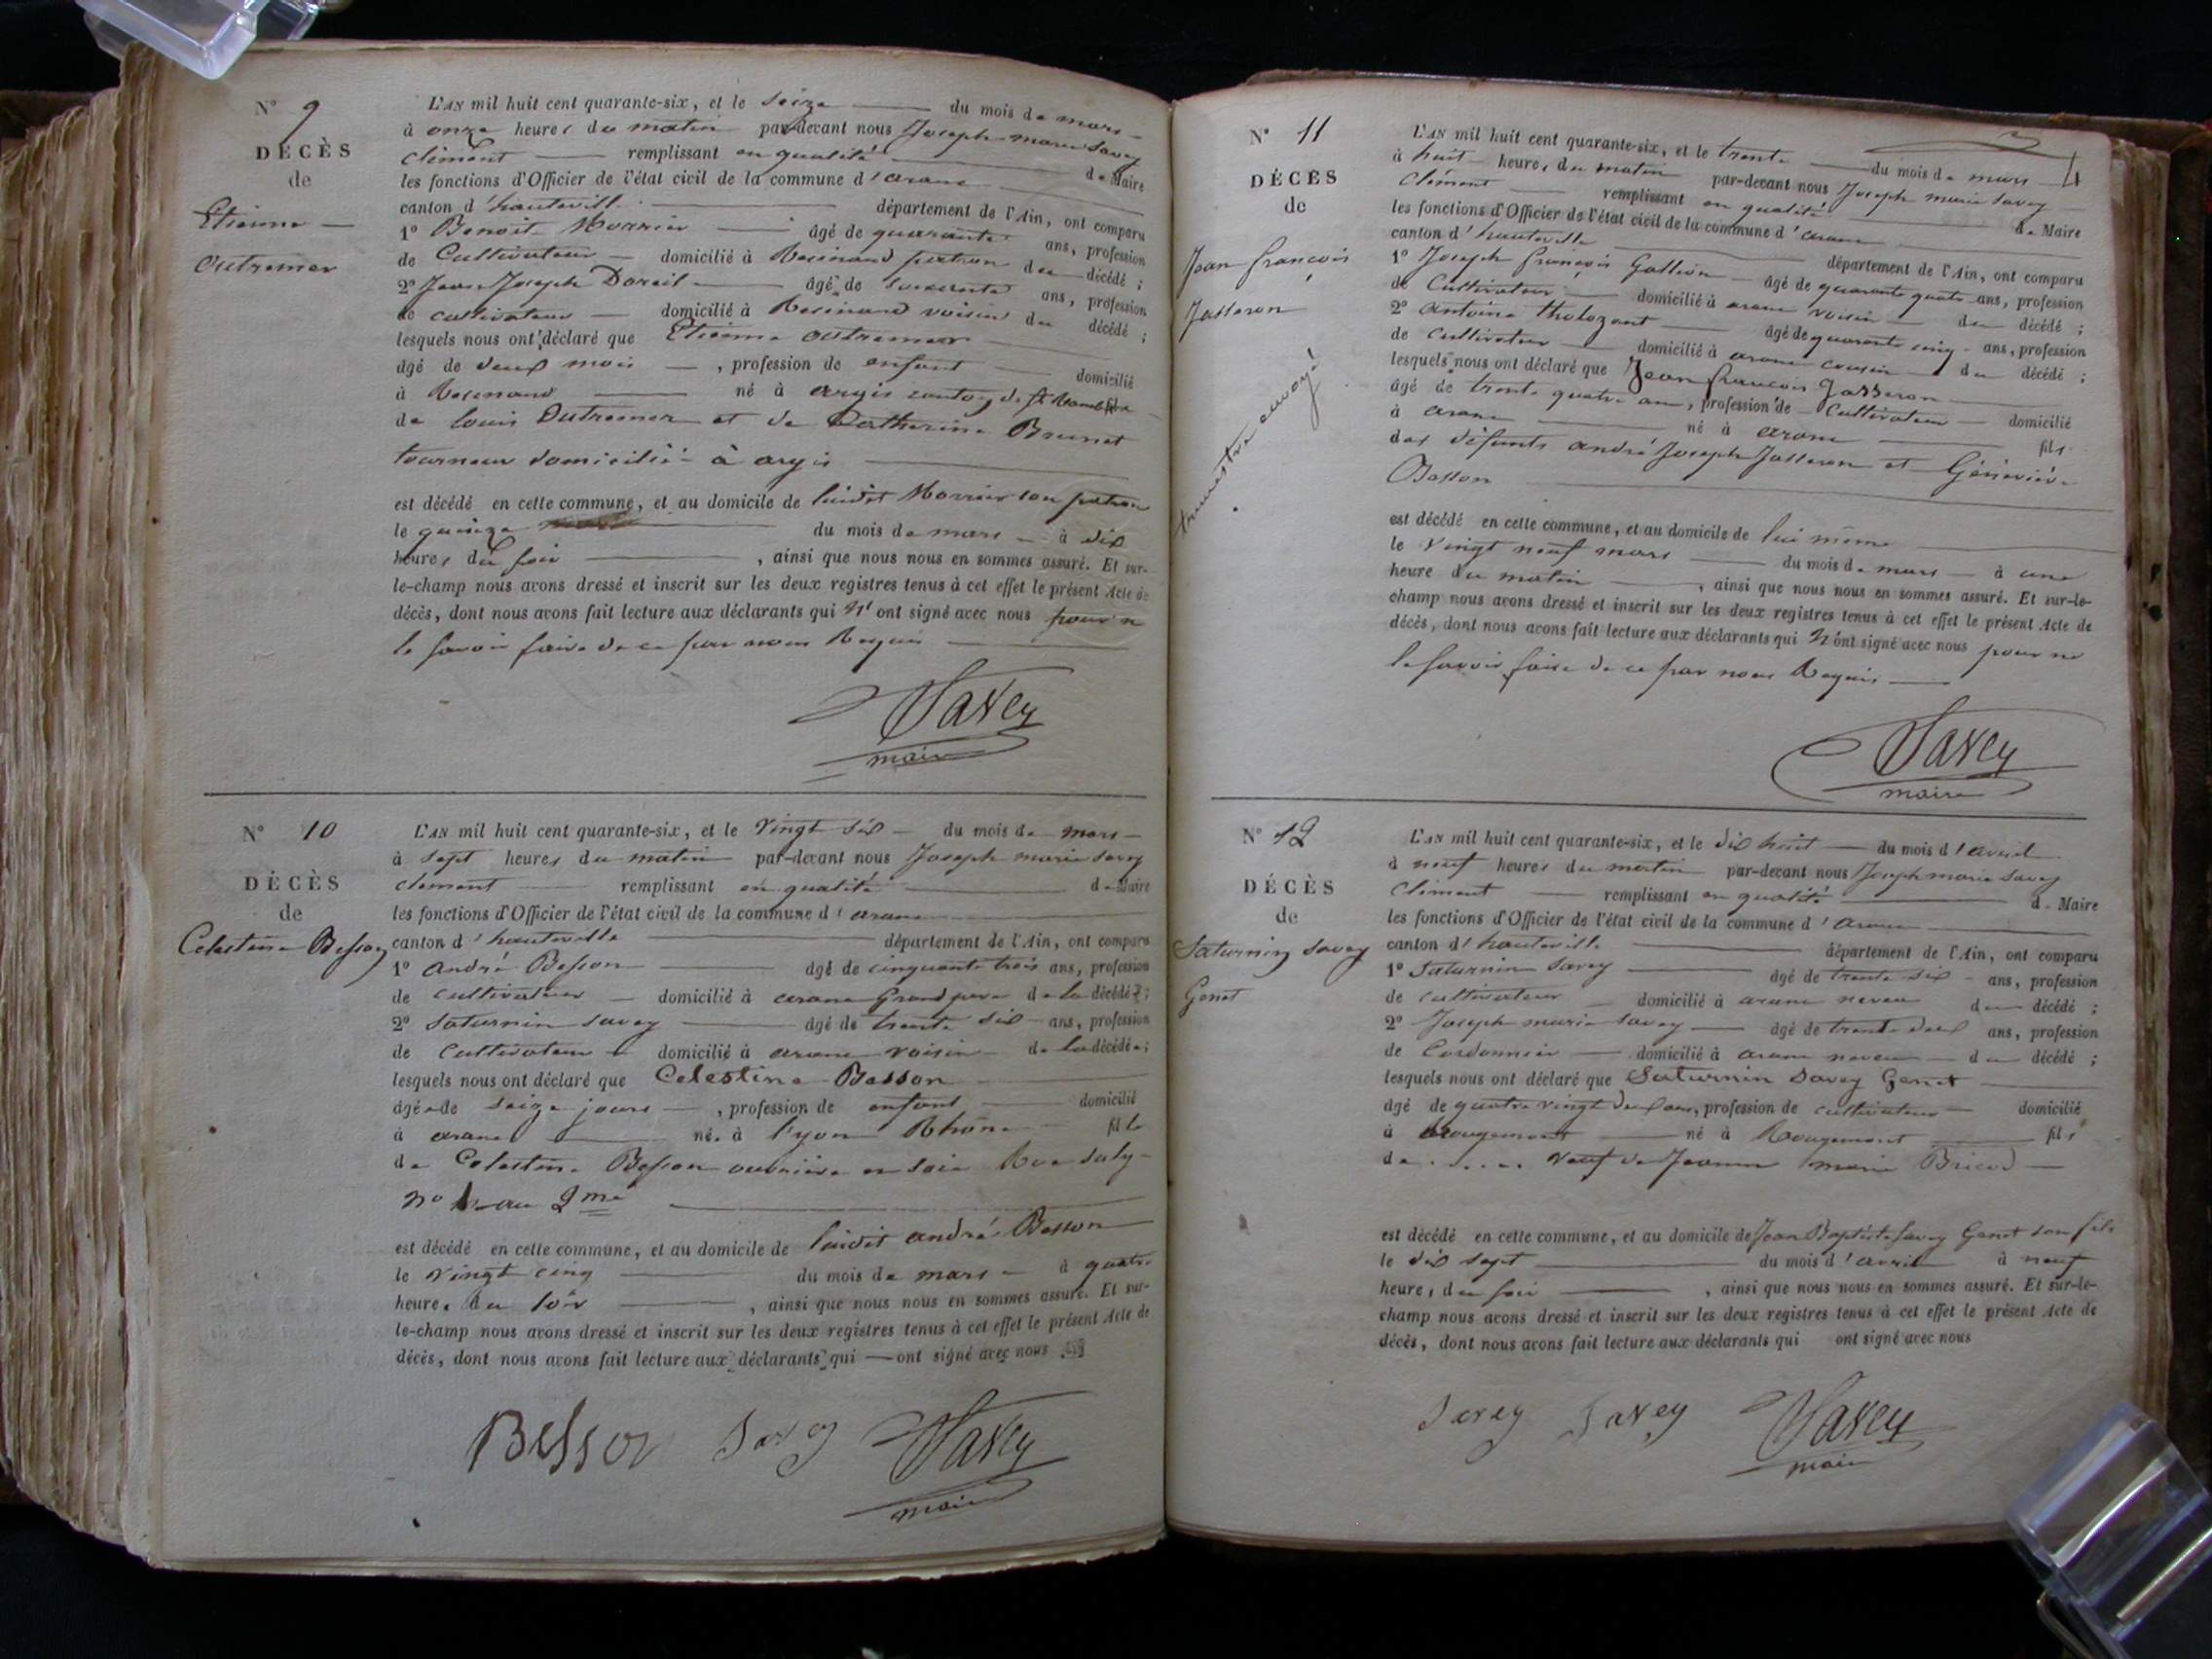 N° 9
DÉCÈS
de
Etienne
Outremer
L'AN mil huit cent quarante-six, et le seize du mois de mars
à onze heures du matin par-devant nous Joseph marie Savey
clément remplissant en qualité de Maire
les fonctions d'Officier de l'état civil de la commune d'arane
canton d'hauteville département de l'Ain, ont comparu
1° Benoit Morrier âgé de quarante ans, profession
de Cultivateur domicilié à Resinand patron du décédé ;
2° Jean Joseph âgé de soixante ans, profession
de cultivateur domicilié à Resinand voisin du décédé ;
lesquels nous ont déclaré que Etienne outremer
âgé de deux mois , profession de enfant domicilié
à Resinand né à argis canton de St Rambert fils
de louis Outremer et de Catherine Brunet
tourneur domicilié à argis
est décédé en cette commune, et au domicile de ludit Morrier son patron
le quinze du mois de mars à dix
heures du soir , ainsi que nous nous en sommes assuré. Et sur-
le-champ nous avons dressé et inscrit sur les deux registres tenus à cet effet le présent Acte de
décès, dont nous avons fait lecture aux déclarants qui n'ont signé avec nous pour ne
le savoir faire de ce par nous Requis
Savey
maire
N° 10
DÉCÈS
de
Celestine Besson
L'AN mil huit cent quarante-six, et le vingt six du mois de mars
à sept heures du matin par-devant nous Joseph marie Savey
clement remplissant en qualité de Maire
les fonctions d'Officier de l'état civil de la commune d'arane
canton d'hauteville département de l'Ain, ont comparu
1° André Besson âgé de cinquante trois ans, profession
de cultivateur domicilié à arane Grand pere de la décédée ;
2° Saturnin Savey âgé de trente six ans, profession
de Cultivateur domicilié à arane voisin de la décédée ;
lesquels nous ont déclaré que Celestine Besson
âgée de seize jours , profession de enfant domicilié
à arane née à lyon Rhône fille
de Celestine Besson ouvrière en soie Rue
n° au 2me
est décédé en cette commune, et au domicile de ludit andré Besson
le vingt cinq du mois de mars à quatre
heures du soir , ainsi que nous nous en sommes assuré. Et sur-
le-champ nous avons dressé et inscrit sur les deux registres tenus à cet effet le présent Acte de
décès, dont nous avons fait lecture aux déclarants qui ont signé avec nous
Besson Savey Savey
maire
N° 11
DÉCÈS
de
Jean francois
Jasseron
envoyé
L'AN mil huit cent quarante-six, et le trente du mois de mars
à huit heures du matin par-devant nous Joseph marie Savey
Clément remplissant en qualité de Maire
les fonctions d'Officier de l'état civil de la commune d'arane
canton d'hauteville département de l'Ain, ont comparu
1° Joseph françois Gallion âgé de quarante quatre ans, profession
de Cultivateur domicilié à arane voisin du décédé ;
2° antoine tholozant âgé de quarante cinq ans, profession
de cultivateur domicilié à arane cousin du décédé ;
lesquels nous ont déclaré que Jean francois Jasseron
âgé de trente quatre ans, profession de Cultivateur domicilié
à arane né à arane fils
des défunts andré Joseph Jasseron et Géneviève
Besson
est décédé en cette commune, et au domicile de lui même
le vingt neuf mars du mois de mars à une
heure du matin , ainsi que nous nous en sommes assuré. Et sur-le-
champ nous avons dressé et inscrit sur les deux registres tenus à cet effet le présent Acte de
décès, dont nous avons fait lecture aux déclarants qui n'ont signé avec nous pour ne
le savoir faire de ce par nous Requis
Savey
maire
N° 12
DÉCÈS
de
Saturnin Savey
Genet
L'AN mil huit cent quarante-six, et le dix huit du mois d'avril
à neuf heures du matin par-devant nous Joseph marie Savey
Clément remplissant en qualité de Maire
les fonctions d'Officier de l'état civil de la commune d'arane
canton d'hauteville département de l'Ain, ont comparu
1° Saturnin Savey âgé de trente six ans, profession
de cultivateur domicilié à arane neveu du décédé ;
2° Joseph marie Savey âgé de trente deux ans, profession
de Cordonnier domicilié à arane neveu du décédé ;
lesquels nous ont déclaré que Saturnin Savey Genet
âgé de quatre vingt deux ans, profession de cultivateur domicilié
à Rougemont né à Rougemont fils
de ..... veuf de Jeanne marie Bricod
est décédé en cette commune, et au domicile de Jean Baptiste Savey Genet son fils
le dix sept du mois d'avril à neuf
heures du soir , ainsi que nous nous en sommes assuré. Et sur-le-
champ nous avons dressé et inscrit sur les deux registres tenus à cet effet le présent Acte de
décès, dont nous avons fait lecture aux déclarants qui ont signé avec nous
Savey Savey Savey
maire